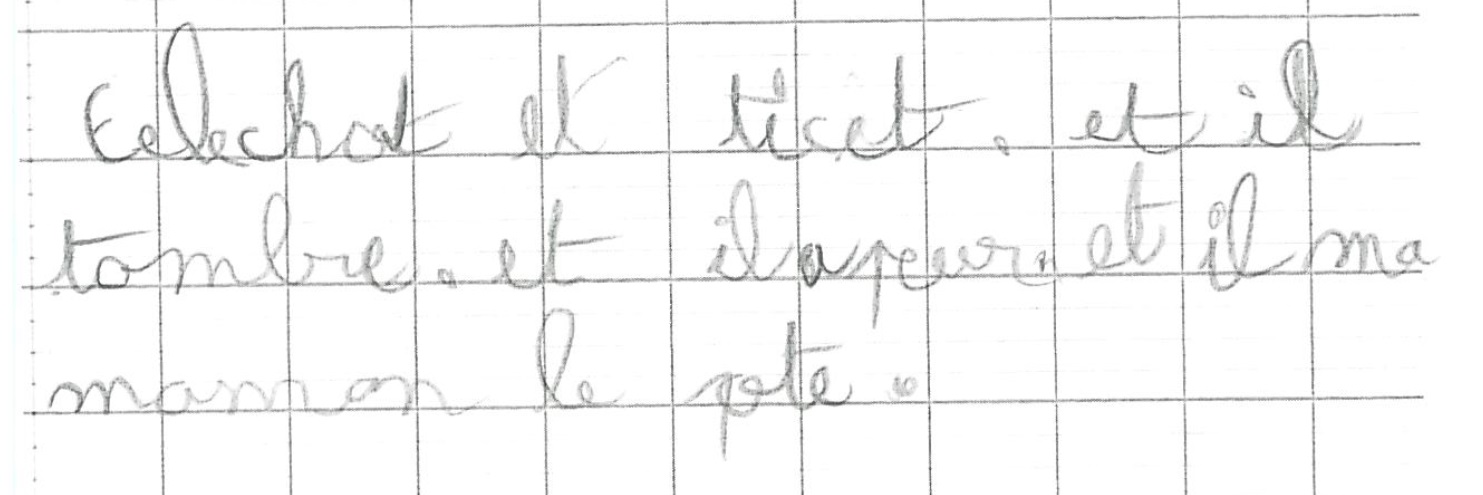 Eelechat et ticet. et il
tombre. et il a peur. et il ma
maman le pote.